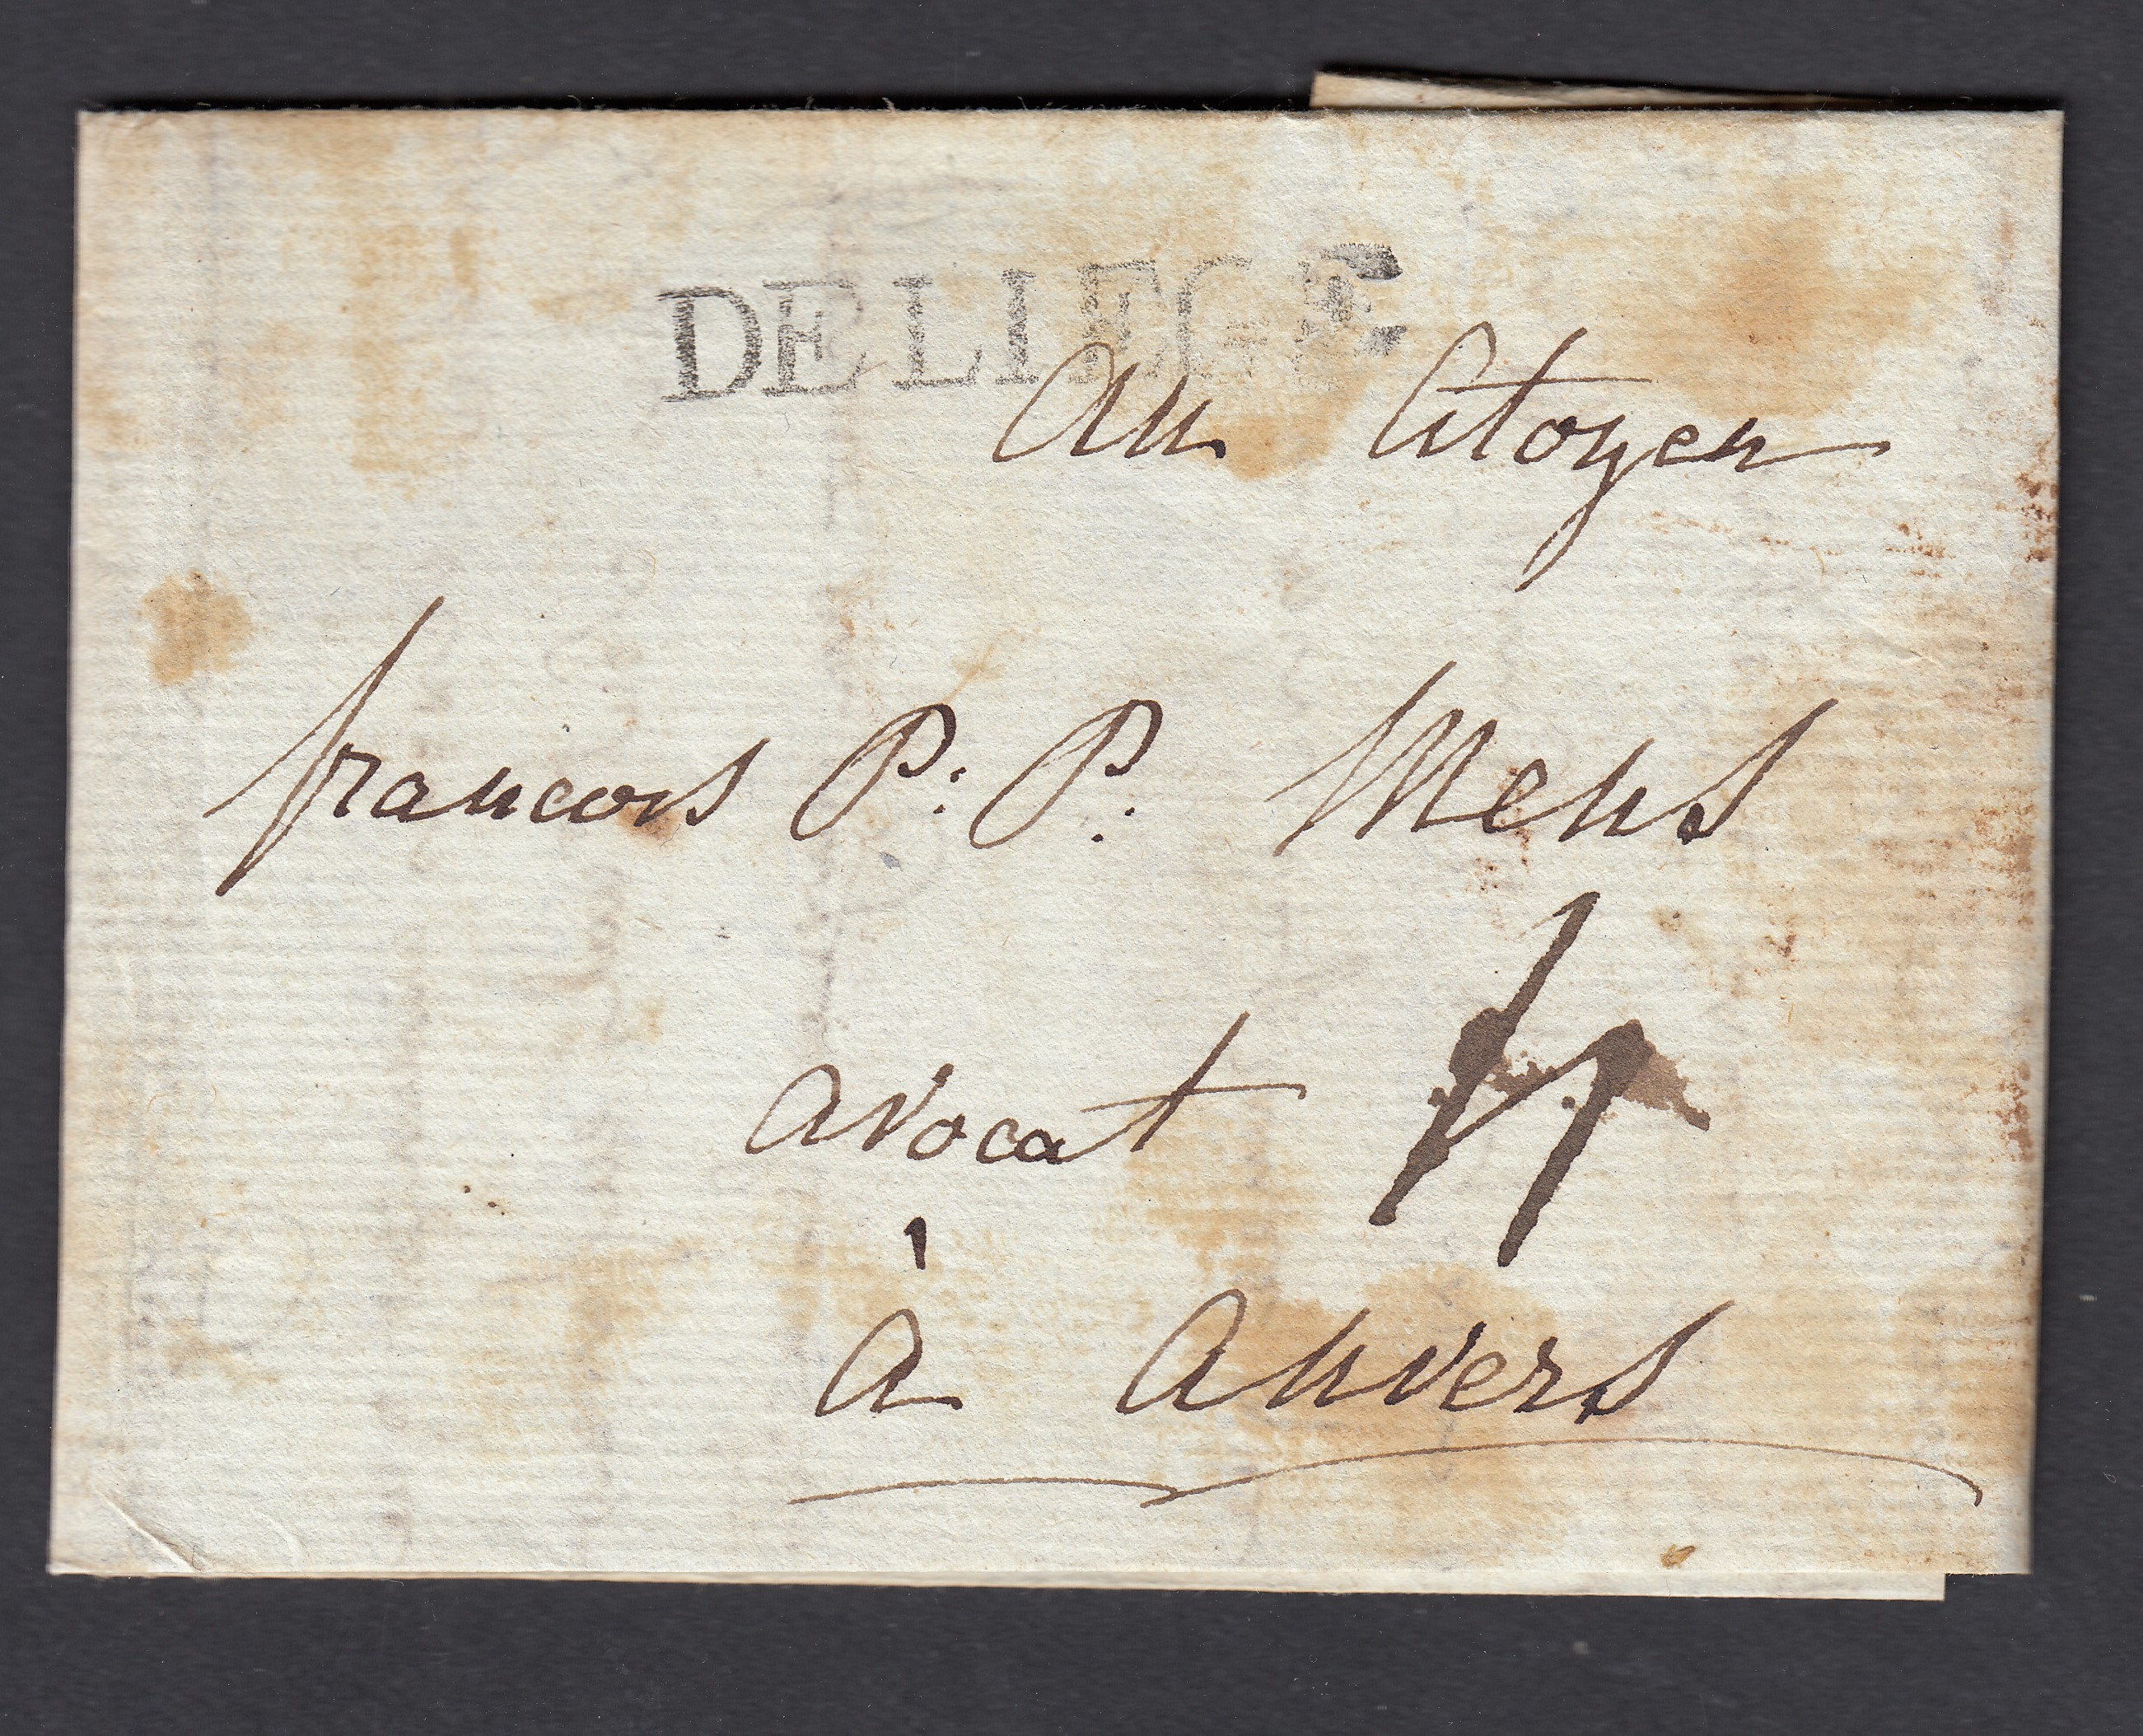 DE LIEGE
Au Citoyen
francois P: P. Mens
avocat
à Anvers